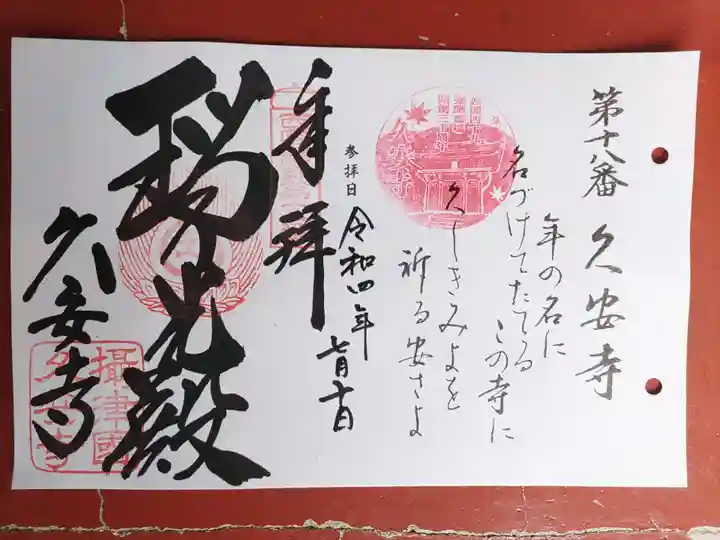 第十八番 久安寺
年の名に
名づけてたてる
この寺に
久しきみよを
祈る安さよ
久安寺
参拝日
令和四年
七月十日
奉拝
瑞光殿
久安寺
攝津國
久安寺